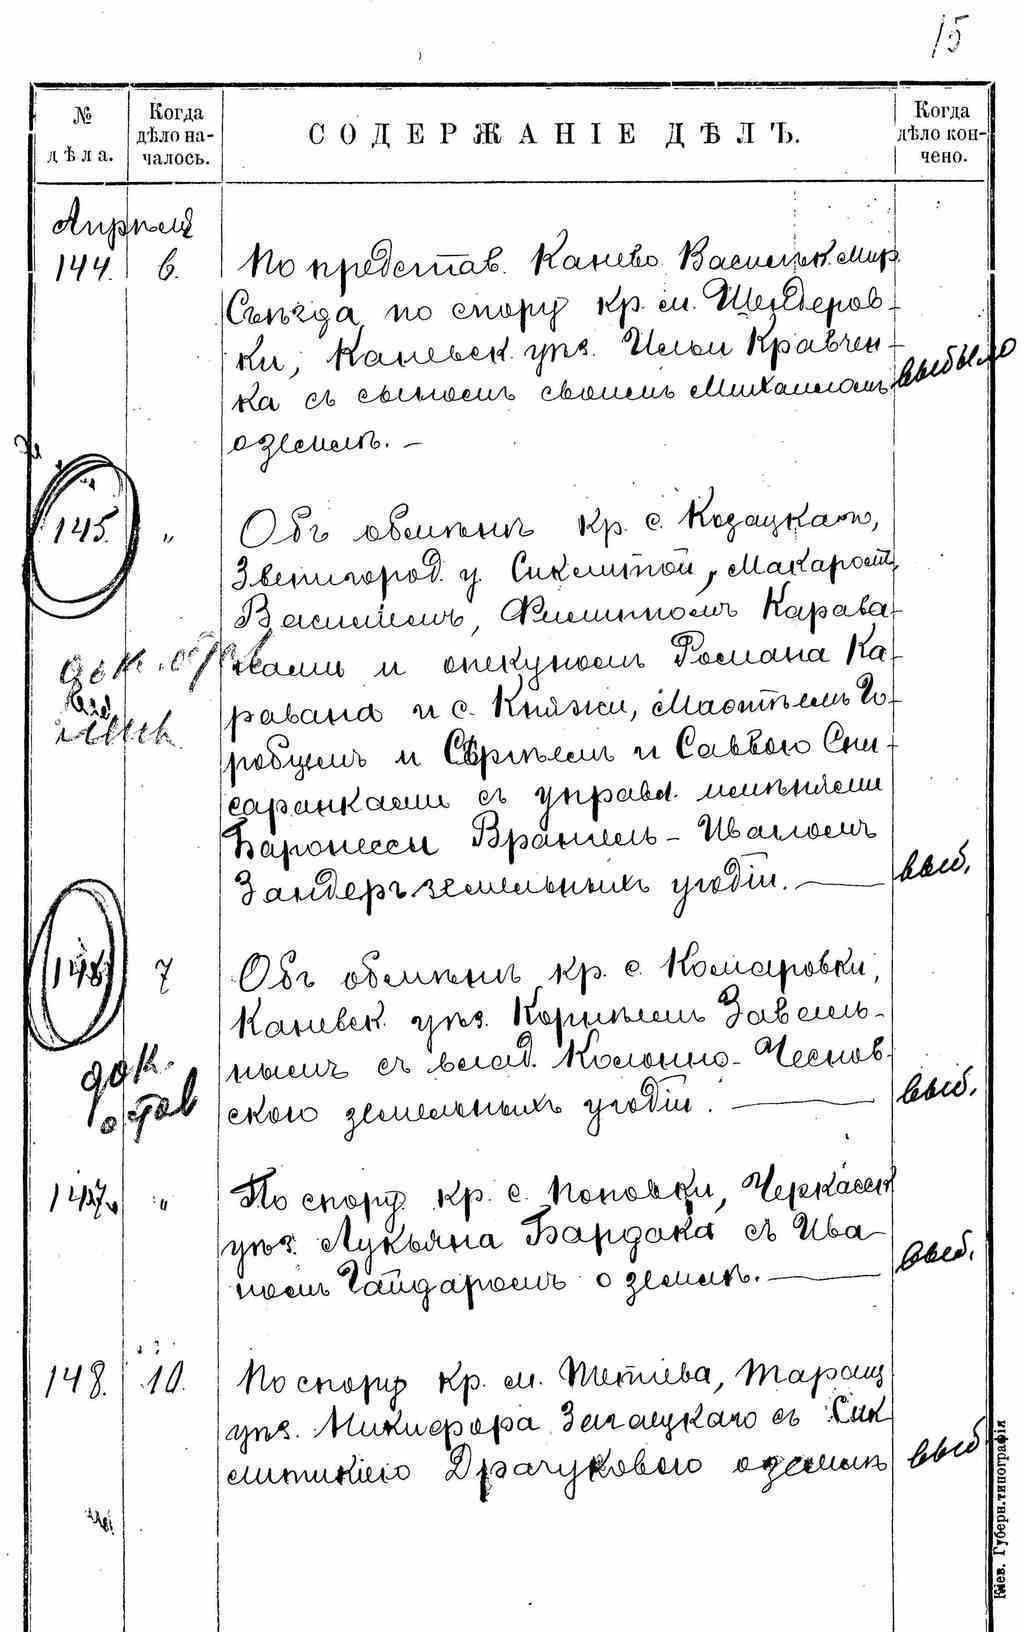 15
№ дѣла.
Когда дѣло началось.
СОДЕРЖАНІЕ ДѢЛЪ.
Когда дѣло кончено.
Апрѣля
144. 6. По представ. Канево Васильк. Мир.
Съѣзда, по спору кр. м. Шендеров-
ки, Каневск. уѣз. Ильи Кравчен-
ка съ сыномъ своимъ Михаиломъ выбыло
о землѣ. –
145. „ Объ обмѣнѣ кр. с. Козацкаго,
Звенигород. у.
Василіемъ, Филиппомъ Карава-
нами и опекуномъ Романа Ка-
равана и с. Княжи,
и Сергѣемъ и Саввою Сни-
саренками съ управл. имѣніями
Баронессы Врангель – Иваномъ
Зандеръ земельныхъ угодій. выб.
док. остав
7 Объ обмѣнѣ кр. с. Комаровки,
Каневск. уѣз. Корнѣемъ Завель-
нымъ съ влад. Колонно-Чеснов-
скою земельныхъ угодій. выб.
147. „ По спору кр. с. Поповки, Черкасск
уѣз. Лукьяна Бардака съ Ива-
номъ Гайдаромъ о землѣ. выб.
148. 10. По спору кр. м. Тетіева, Таращ
уѣз. Никифора Загацкаго съ
Драчуковою о землѣ выб
Кіев. Губерн. типографія